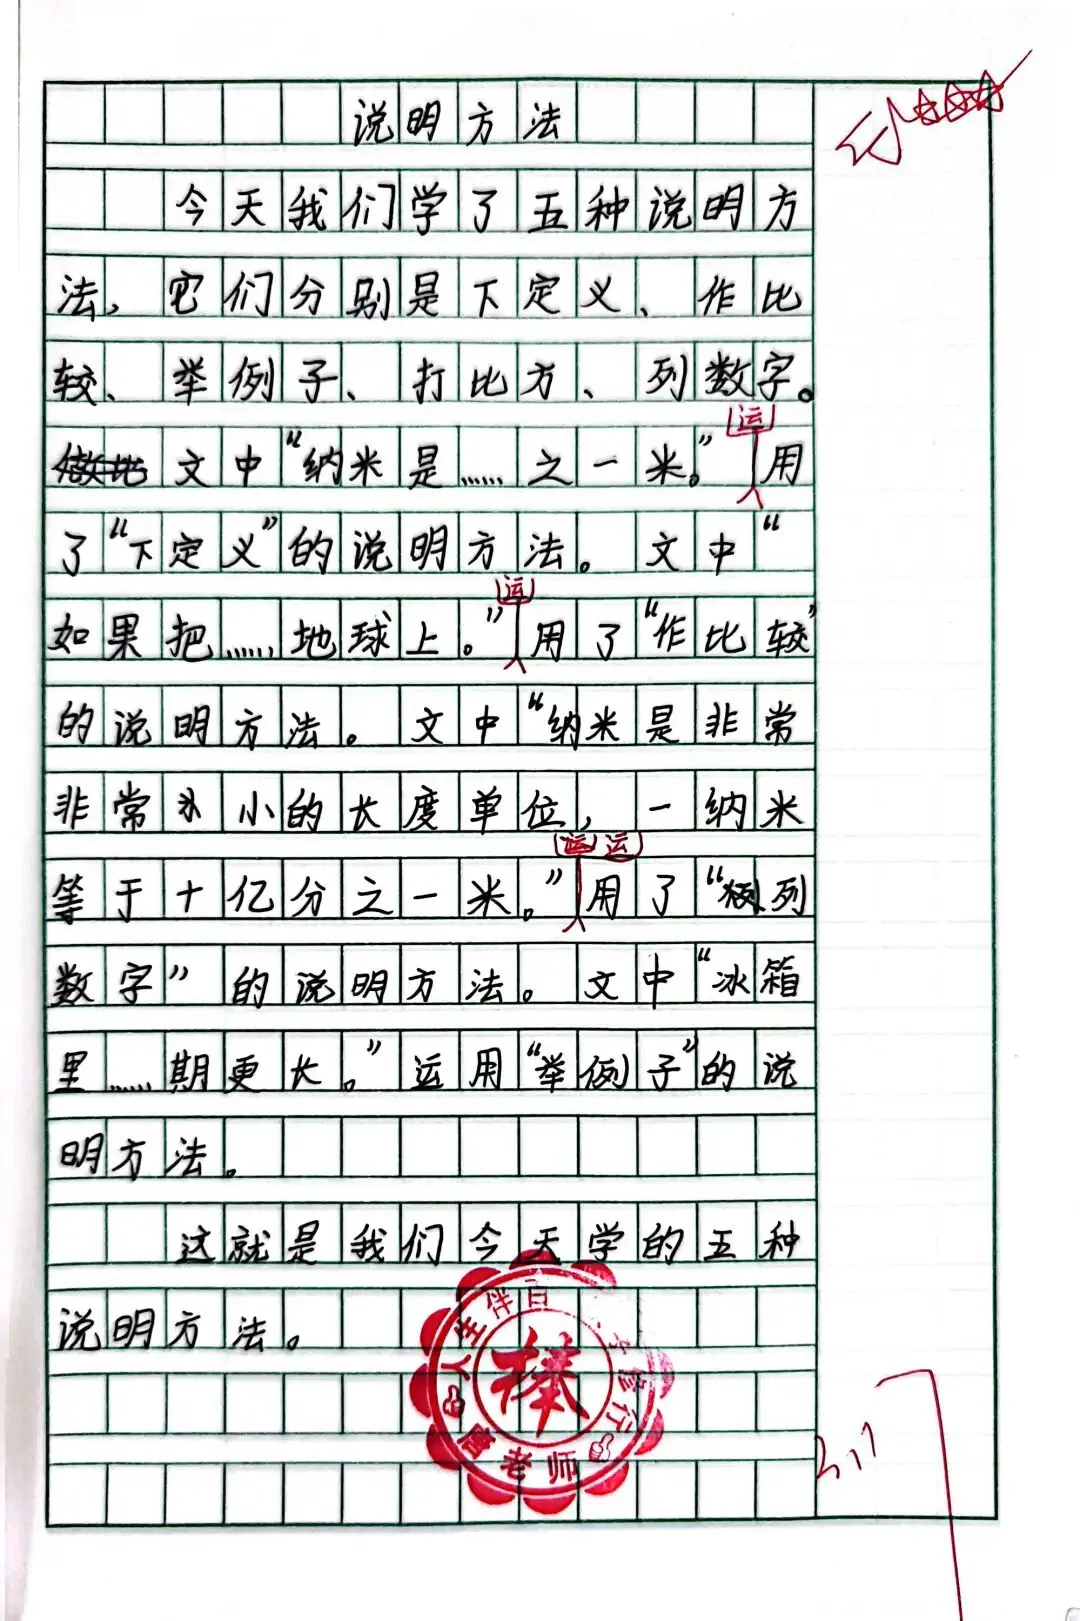 说明方法
今天我们学了五种说明方
法，它们分别是下定义、作比
较、举例子、打比方、列数字。
文中“纳米是……之一米。”运用
了“下定义”的说明方法。文中“
如果把……地球上。”运用了“作比较”
的说明方法。文中“纳米是非常
非常小的长度单位，一纳米
等于十亿分之一米。”运用了“列
数字”的说明方法。文中“冰箱
里……期更长。”运用“举例子”的说
明方法。
这就是我们今天学的五种
说明方法。
人生伴百
修行
棒
老师
3.17